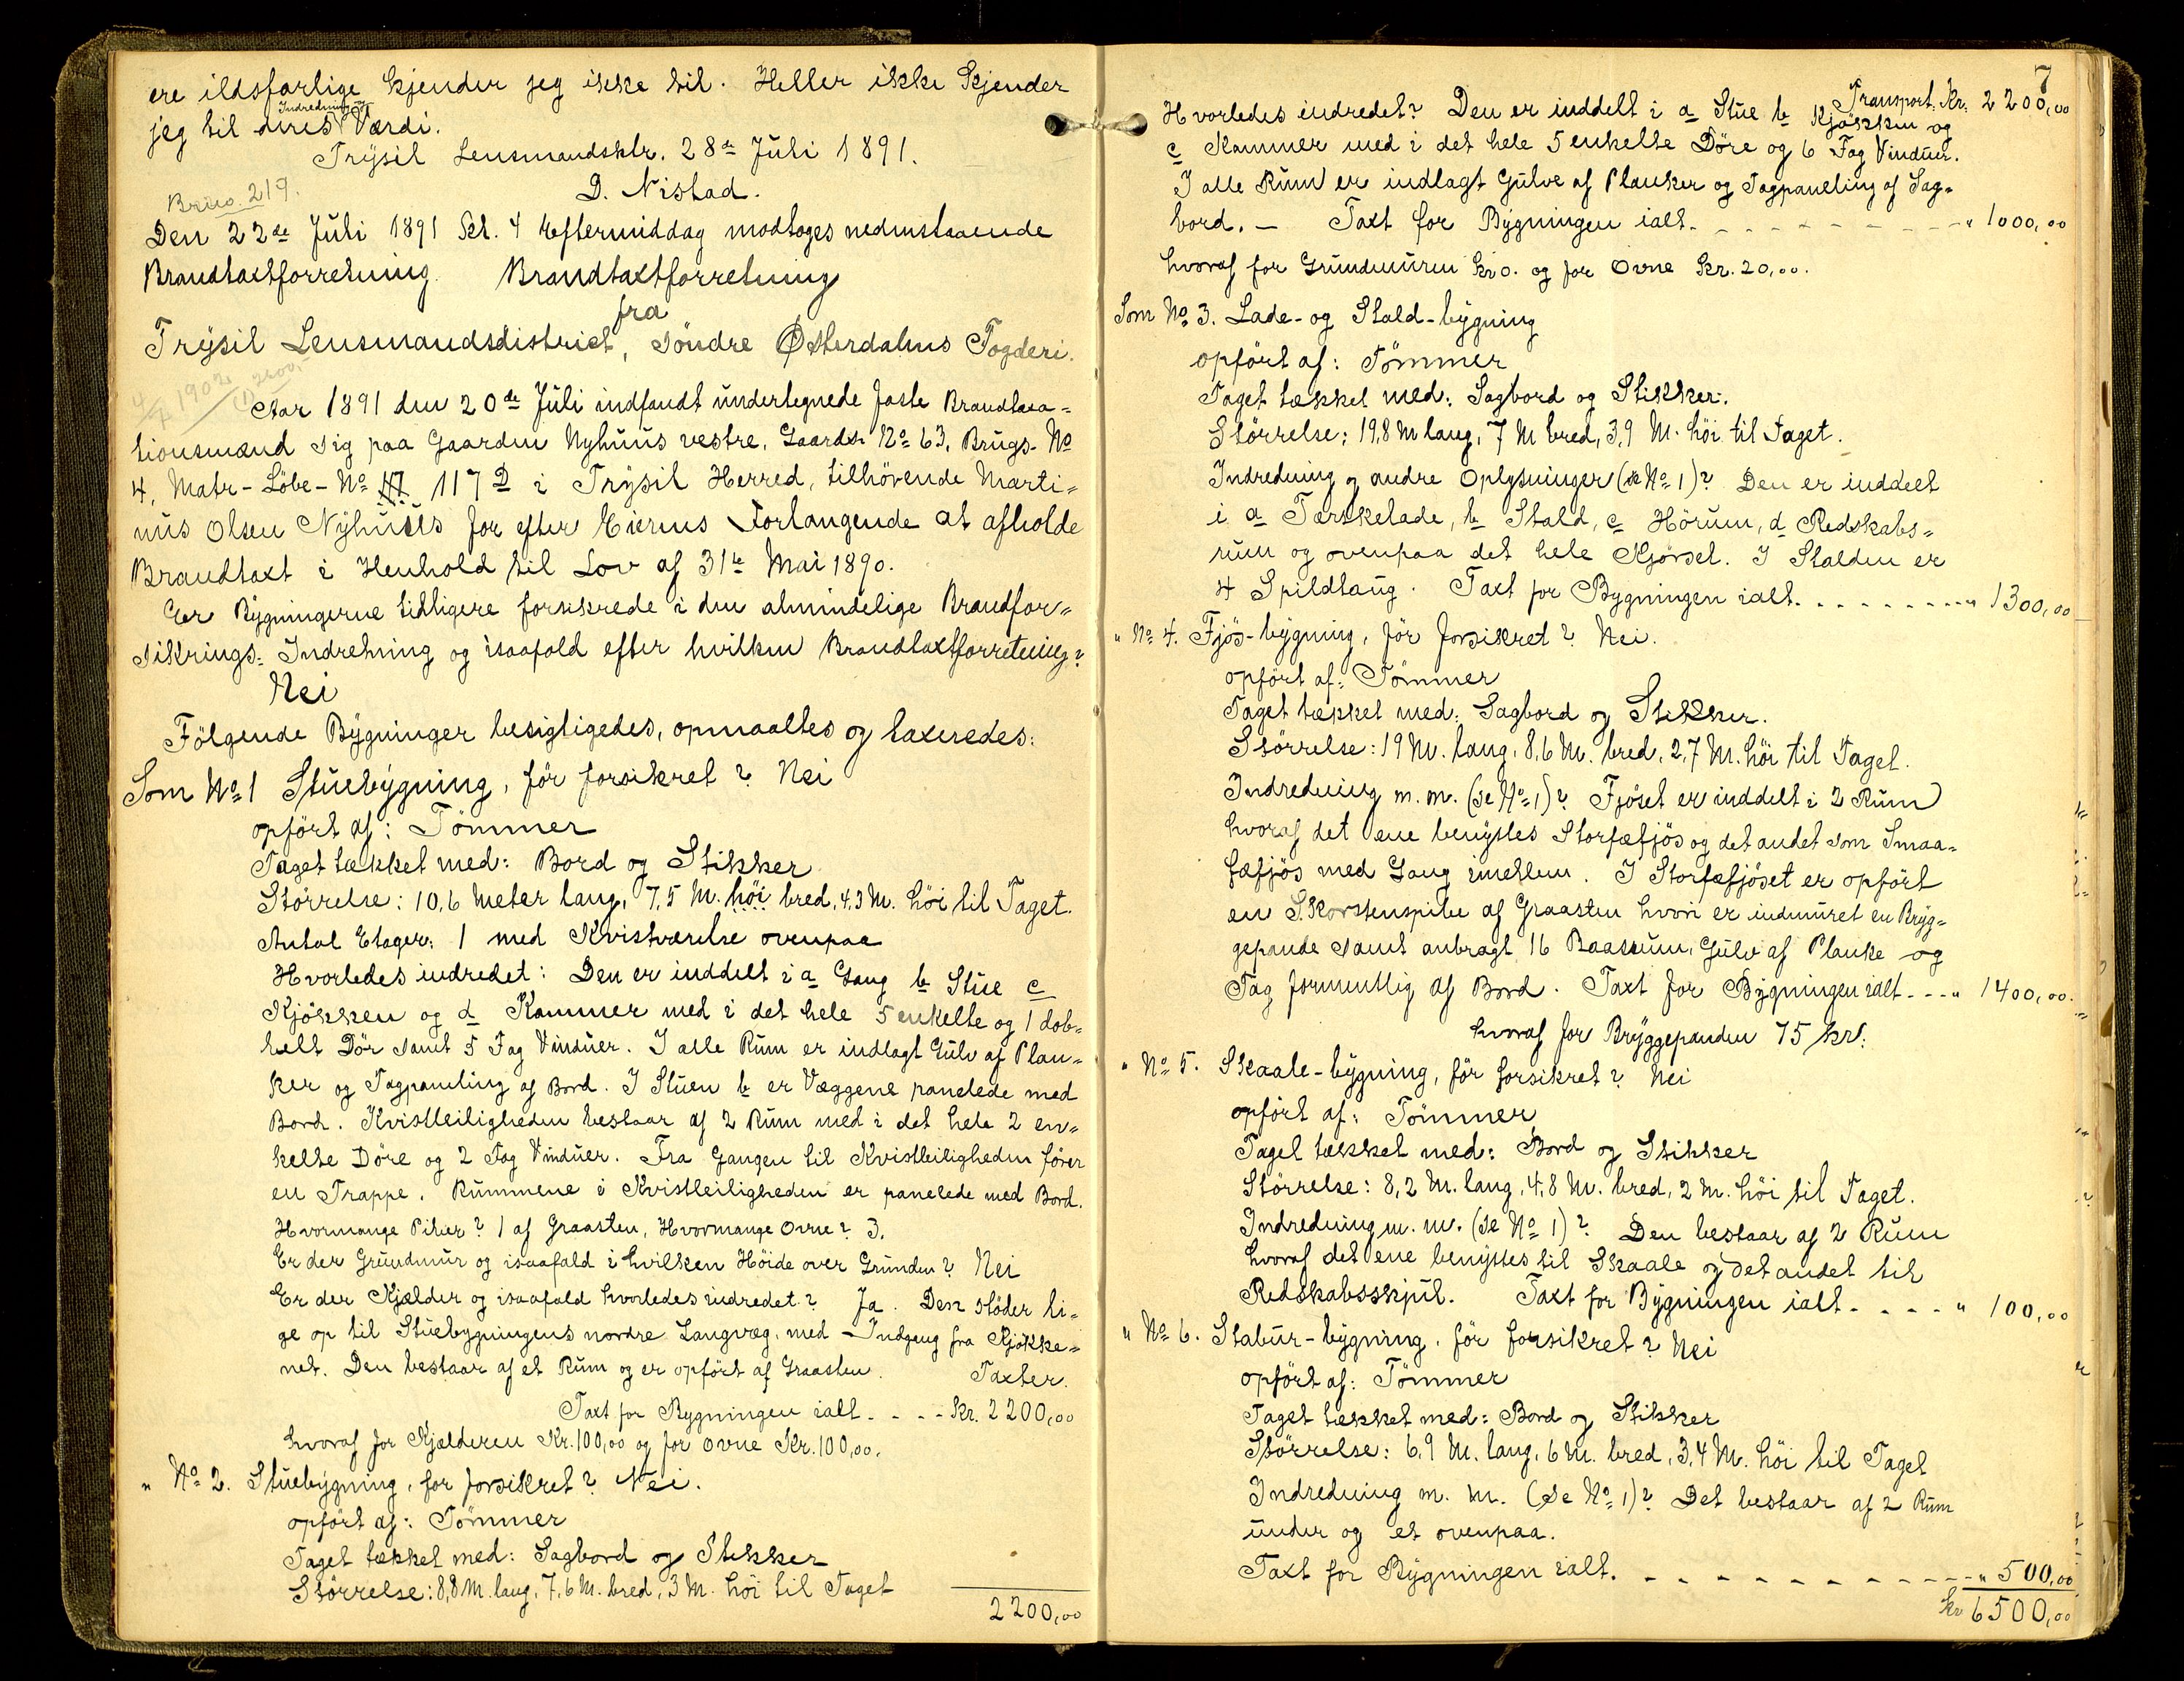 ere ildsfarlige kjender jeg ikke til. Heller ikke kjender
Indredning og
jeg til deres Værdi.
Trysil Lensmandsktr. 28de Juli 1891.
D. Nistad.
Brno. 219.
Den 22de Juli 1891 Kl. 4 Eftermiddag modtoges nedenstaaende
Brandtaxtforretning. Brandtaxtforretning
fra
Trysil Lensmandsdistrict, söndre Østerdalens Fogderi.
4/7 1902 (1) 2200,-
Aar 1891 den 20de Juli indfandt undertegnede faste Brandtaxa=
tionsmænd sig paa Gaarden Nyhuus vestre, Gaards No 63, Brugs-No
4, Matr-Löbe-No 117 117 D i Trysil Herred, tilhörende Marti=
nus Olsen Nyhuus for efter Eierens Forlangende at afholde
Brandtaxt i Henhold til Lov af 31te Mai 1890.
Er Bygningerne tidligere forsikrede i den almindelige Brandfor=
sikrings-Indretning og isaafald efter hvilken Brandtaxtforretning?
Nei
Fölgende Bygninger besigtigedes, opmaaltes og taxeredes:
Som No 1 Stuebygning, för forsikret? Nei
opfört af: Tömmer
Taget tækket med: Bord og Stikker
Störrelse: 10,6 Meter lang, 7,5 M. höi bred, 4,3 M. höi til Taget.
Antal Etager: 1 med Kvistværelse ovenpaa
Hvorledes indredet: Den er inddelt i a Gang b Stue c
Kjökken og d Kammer med i det hele 5 enkelte og 1 dob=
belt Dör samt 5 Fag Vinduer. I alle Rum er indlagt Gulv af Plan=
ker og Tagpaneling af Bord. I Stuen b er Væggene panelede med
Bord. Kvistleiligheden bestaar af 2 Rum med i det hele 2 en=
kelte Döre og 2 Fag Vinduer. Fra Gangen til Kvistleiligheden förer
en Trappe. Rummene i Kvistleiligheden er panelede med Bord.
Hvormange Piber? 1 af Graasten, Hvormange Ovne? 3.
Er der Grundmur og isaafald i hvilken Höide over Grunden? Nei
Er der Kjælder og isaafald hvorledes indredet? Ja. Den stöder li=
ge op til Stuebygningens nordre Langvæg, med Indgang fra Kjökke=
net. Den bestaar af et Rum og er opfört af Graasten. Taxter.
Taxt for Bygningen ialt. - - - Kr. 2200,00
hvoraf for Kjælderen Kr. 100,00 og for Ovne Kr. 100,00.
" No 2. Stuebygning, for forsikret? Nei.
opfört af: Tömmer
Taget tækket med: Sagbord og Stikker
Störrelse: 8,8 M. lang, 7,6 M. bred, 3 M. höi til Taget
2200,00
7
Transport: Kr. 2200,00
Hvorledes indredet? Den er inddelt i a Stue b Kjökken og
c Kammer med i det hele 5 enkelte Döre og 6 Fag Vinduer.
I alle Rum er indlagt Gulve af Planker og Tagpaneling af Sag=
bord. - Taxt for Bygningen ialt. - - - - - - - - - " 1000,00
hvoraf for Grundmuren Kr 0. og for Ovne Kr. 20,00.
Som No 3. Lade- og Stald-bygning
opfört af: Tömmer
Taget tækket med: Sagbord og Stikker.
Störrelse: 19,8 M lang, 7 M bred, 3,9 M. höi til Taget.
Indredning og andre Oplysninger (se No 1)? Den er inddelt
i a Tærskelade, b Stald, c Hörum, d Redskabs=
rum og ovenpaa det hele Kjörsel. I Stalden er
4 Spildtaug. Taxt for Bygningen ialt. - - - - - - - - " 1300,00
" No 4. Fjös-bygning, för forsikret? Nei.
opfört af: Tömmer
Taget tækket med: Sagbord og Stikker.
Störrelse: 19 M. lang, 8,6 M. bred, 2,7 M. höi til Taget.
Indredning m. m. (se No 1)? Fjöset er inddelt i 2 Rum
hvoraf det ene benyttes Storfæfjös og det andet som Smaa=
fæfjös med Gang imellem. I Storfæfjöset er opfört
en Skorstenspibe af Graasten hvori er indmuret en Bryg=
gepande samt anbragt 16 Baasrum, Gulv af Planke og
Tag formentlig af Bord. Taxt for Bygningen ialt - - - " 1400,00.
hvoraf for Bryggepanden 75 kr.
" No 5. Skaale-bygning, för forsikret? Nei
opfört af: Tömmer
Taget tækket med: Bord og Stikker
Störrelse: 8,2 M. lang, 4,8 M. bred, 2 M. höi til Taget.
Indredning m. m. (se No 1)? Den bestaar af 2 Rum
hvoraf det ene benyttes til Skaale og det andet til
Redskabsskjul. Taxt for Bygningen ialt. - - - - " 100,00
" No 6. Stabur-bygning, för forsikret? Nei
opfört af: Tömmer
Taget tækket med: Bord og Stikker
Störrelse: 6,9 M. lang, 6 M. bred, 3,4 M. höi til Taget
Indredning m. m. (se No 1)? Det bestaar af 2 Rum
under og et ovenpaa.
Taxt for Bygningen ialt. - - - - - - - - - - " 500,00
kr 6500,00